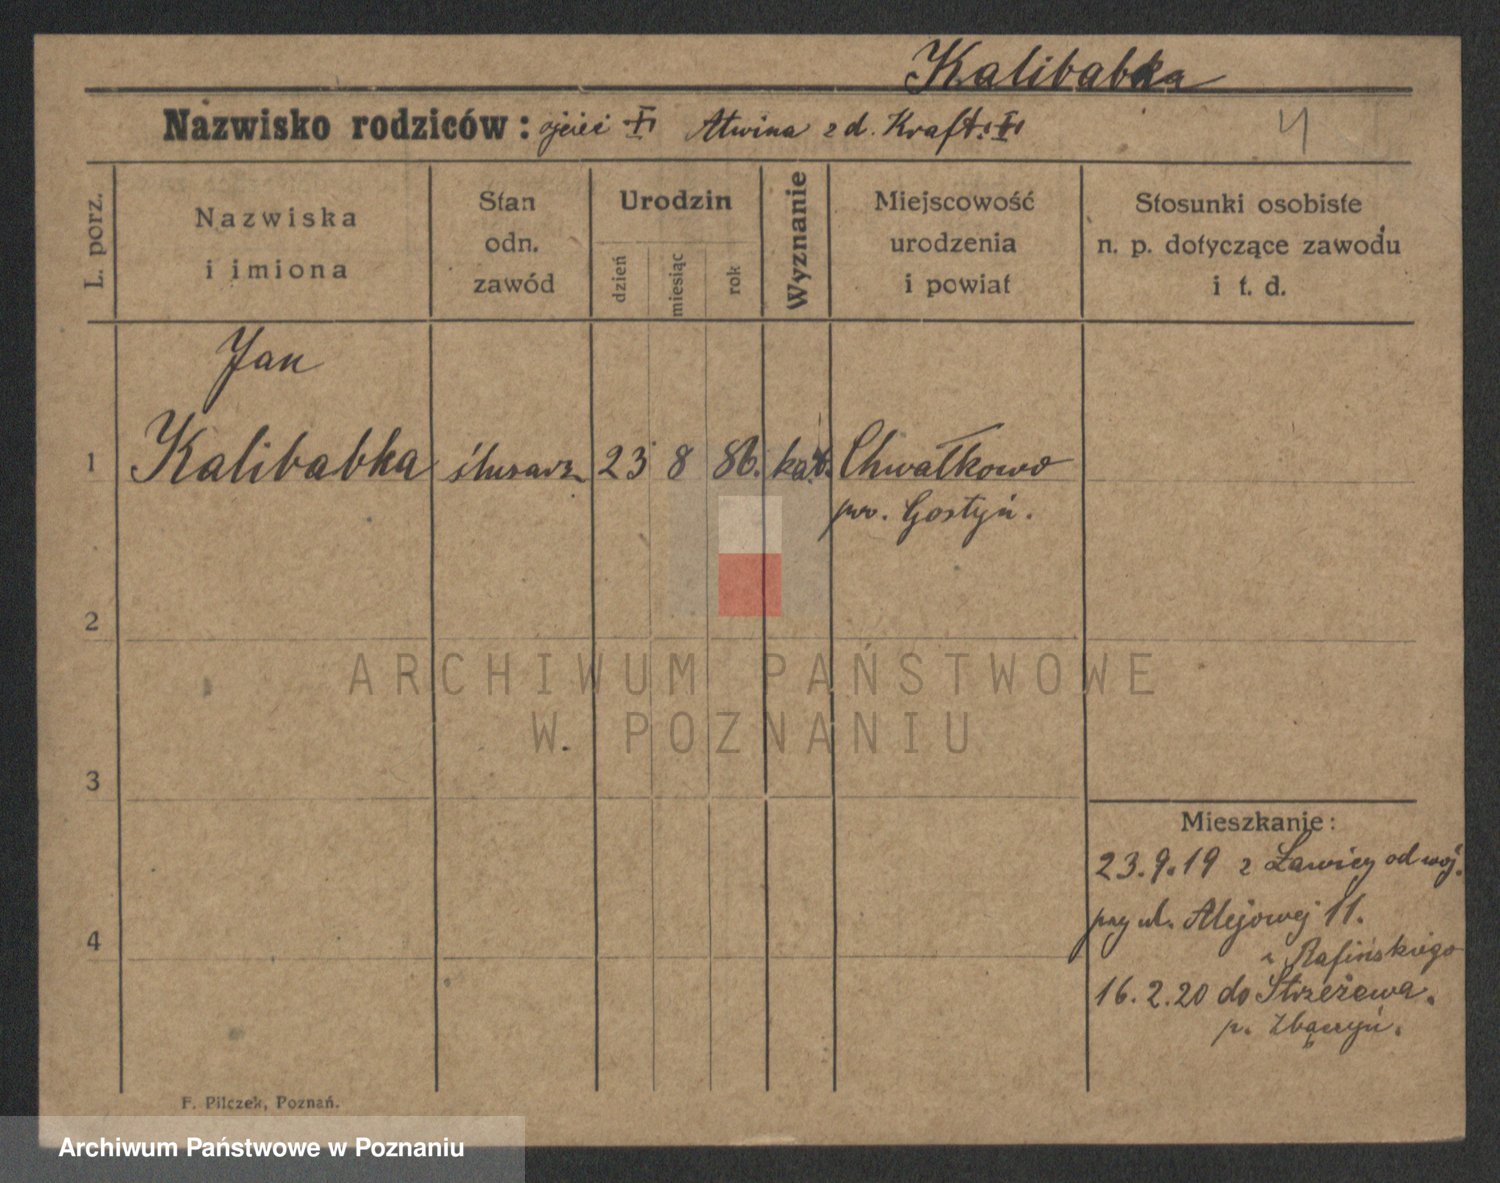 Kalibabka
Nazwisko rodziców: ojciec Atwina z d. Kraft.
4
L. porz.
Nazwiska
i imiona
Stan
odn.
zawód
Urodzin
dzień
miesiąc
rok
Wyznanie
Miejscowość
urodzenia
i powiat
Stosunki osobiste
n. p. dotyczące zawodu
i t. d.
Jan
1 Kalibabka ślusarz 23 8 86. kat. Chwałkowo
pow. Gostyń.
2
ARCHIWUM PAŃSTWOWE
W POZNANIU
3
Mieszkanie:
23.9.19 z Ławicy od woj.
przy ul. Alejowej 11.
4
u Rafińskiego
16.2.20 do Strzeżewa.
p. Zbąszyń.
F. Pilczek, Poznań.
Archiwum Państwowe w Poznaniu